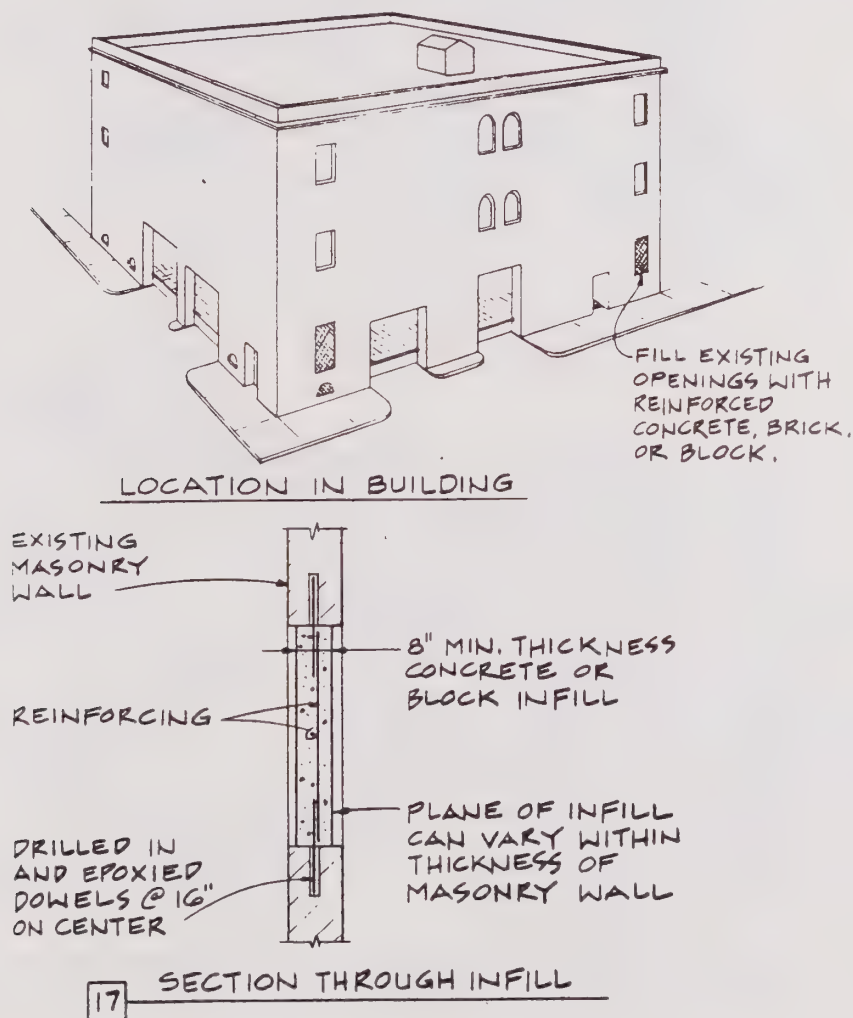 FILL EXISTING
OPENINGS WITH
REINFORCED
CONCRETE, BRICK,
OR BLOCK.
LOCATION IN BUILDING
EXISTING
MASONRY
WALL
8" MIN. THICKNESS
CONCRETE OR
BLOCK INFILL
REINFORCING
PLANE OF INFILL
CAN VARY WITHIN
THICKNESS OF
MASONRY WALL
DRILLED IN
AND EPOXIED
DOWELS @ 16"
ON CENTER
17 SECTION THROUGH INFILL